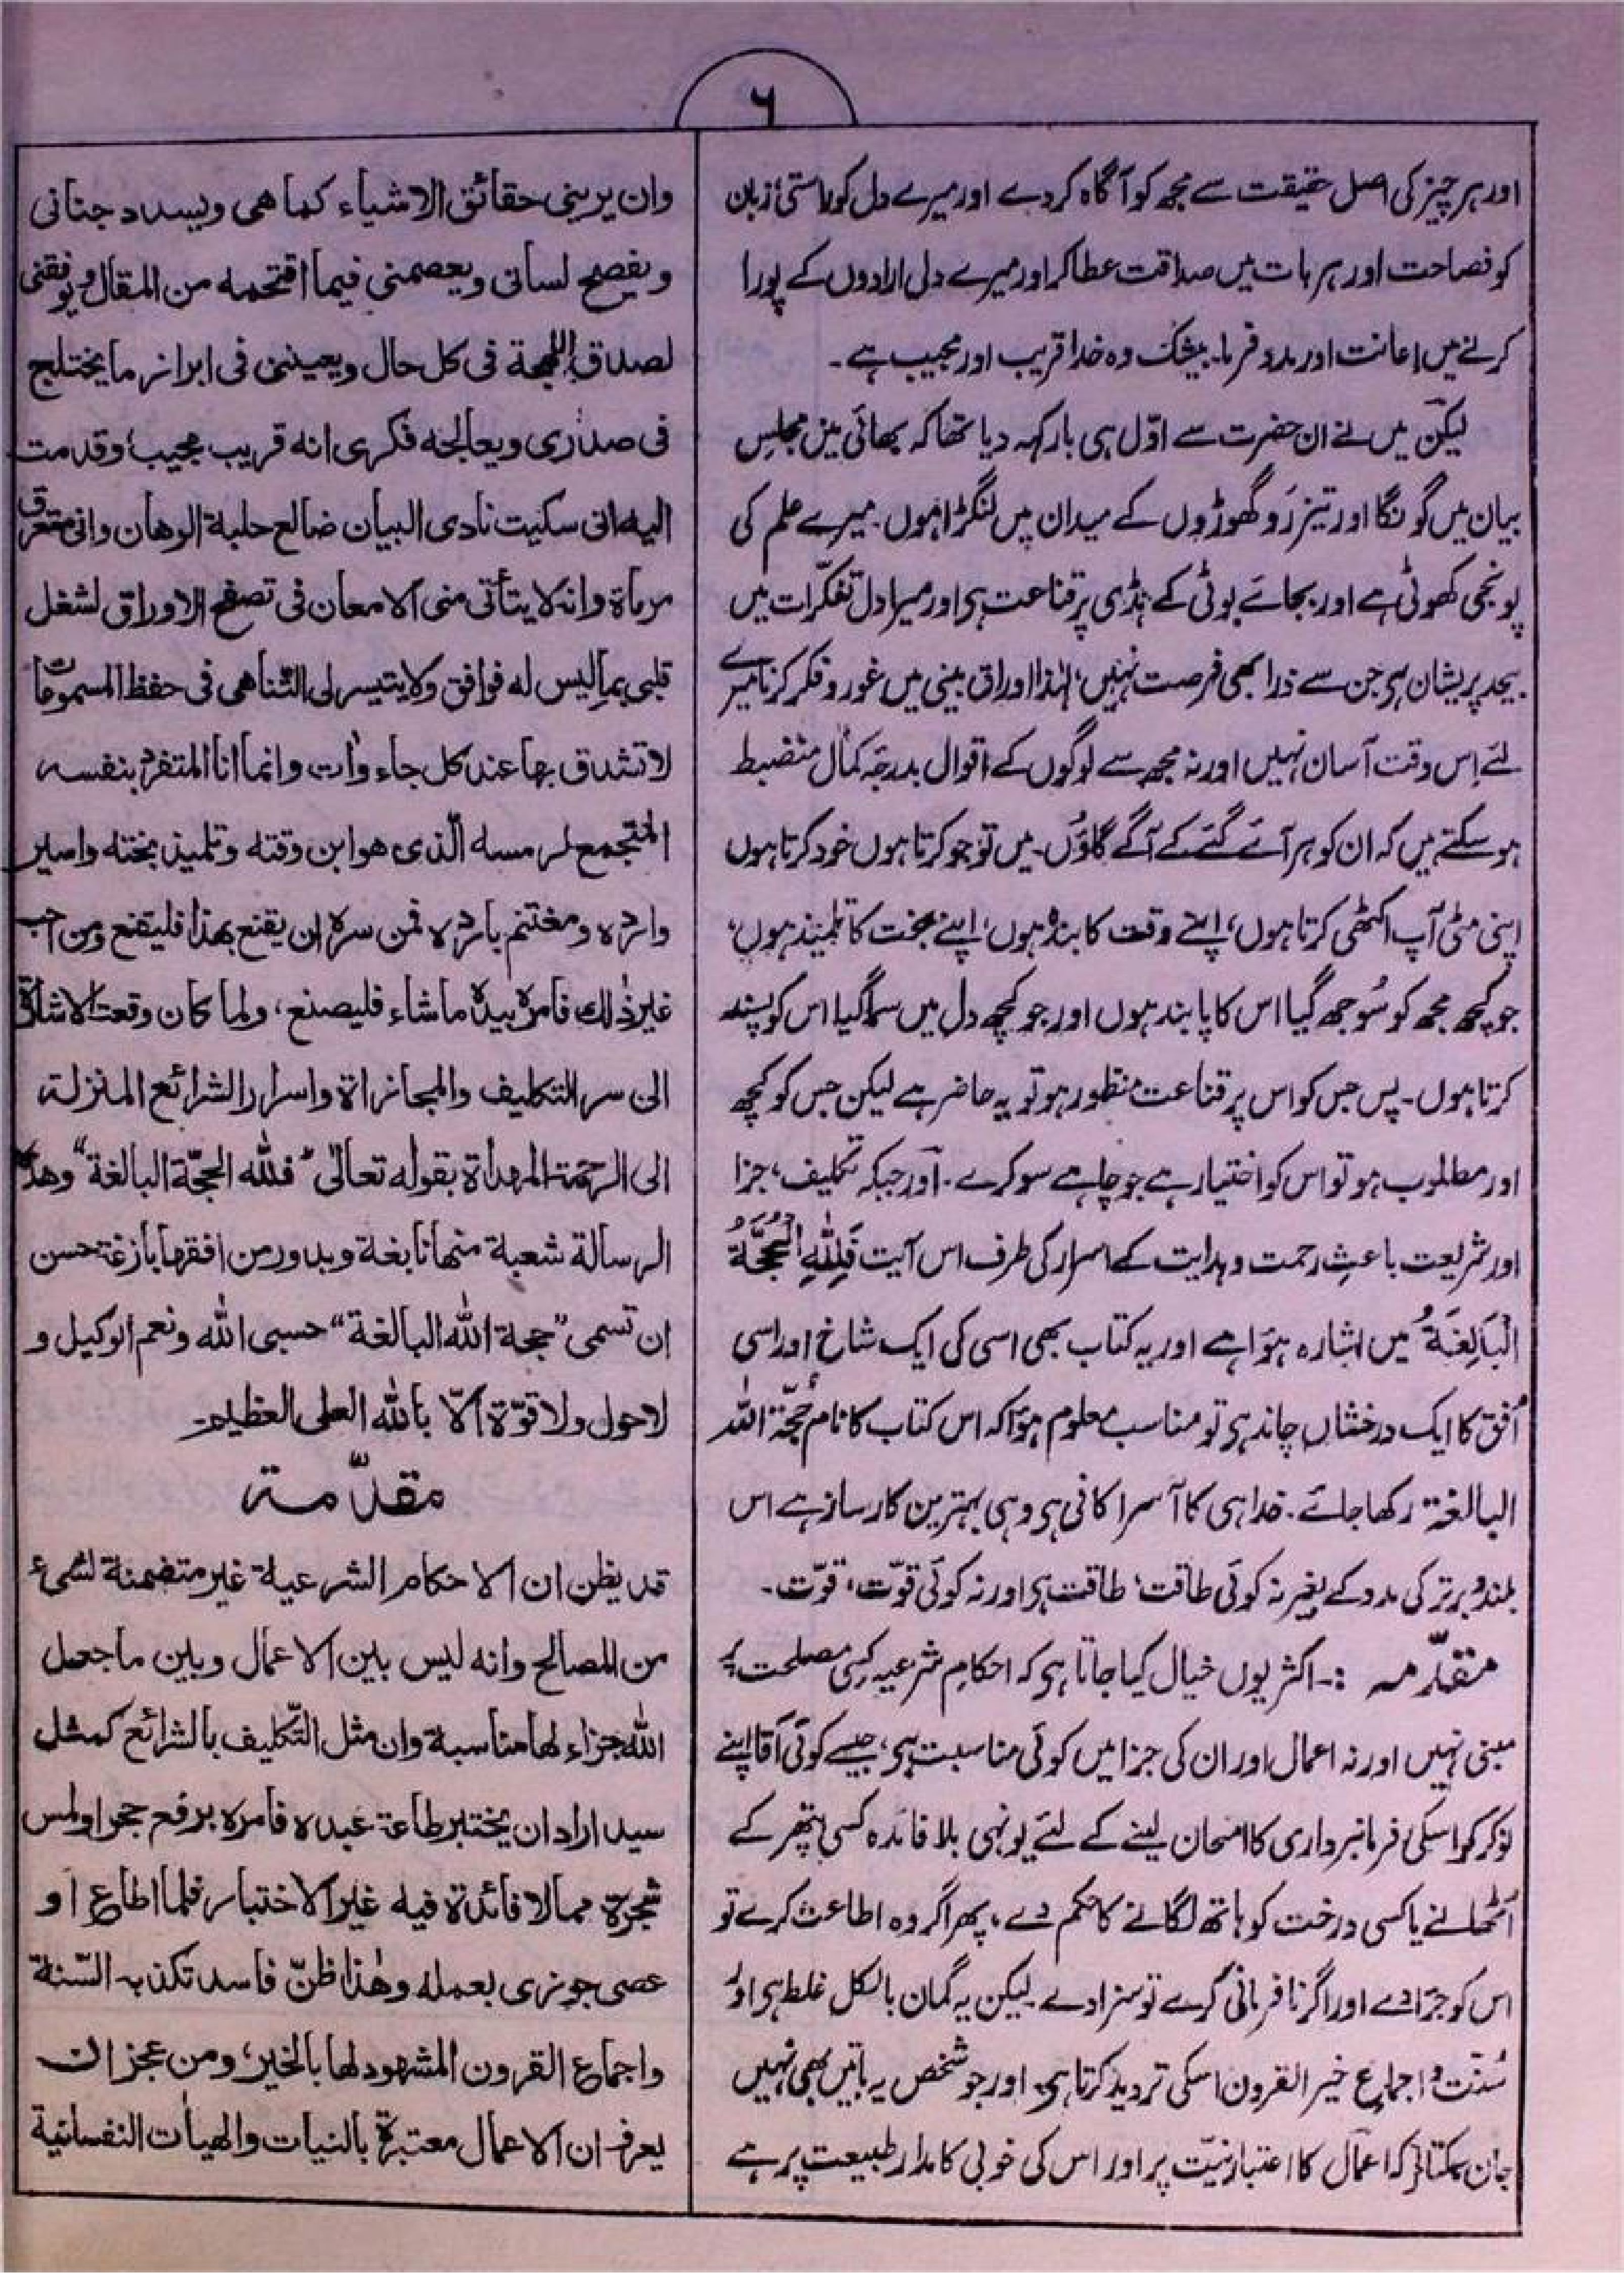 ٦
اور ہر چیز کی اصل حقیقت سے مجھ کو آگاہ کر دے اور میرے دل کو راستی زبان
کو فصاحت اور ہر بات میں صداقت عطا کر اور میرے دلی ارادوں کے پورا
کرنے میں اعانت اور مدد فرما۔ بیشک وہ خدا قریب اور مجیب ہے۔
لیکن میں نے ان حضرت سے اوّل ہی بار کہہ دیا تھا کہ بھائی میں مجلسِ
بیان میں گونگا اور تیز رَو گھوڑوں کے میدان میں لنگڑا ہوں۔ میرے علم کی
پونجی کھوٹی ہے اور بجائے بوٹی کے ہڈی پر قناعت ہی اور میرا دل تفکّرات میں
بیحد پریشان ہی جن سے ذرا بھی فرصت نہیں، لہٰذا اوراق بینی میں غور و فکر کرنا میرے
لئے اِس وقت آسان نہیں اور نہ مجھ سے لوگوں کے اقوال بدرجہ کمال منضبط
ہو سکتے ہیں کہ ان کو ہر آئے گئے کے آگے گاؤں۔ میں تو جو کرتا ہوں خود کرتا ہوں
اپنی مٹی آپ اکٹھی کرتا ہوں، اپنے وقت کا بندہ ہوں، اپنے بخت کا تلمیذ ہوں،
جو کچھ مجھ کو سُوجھ گیا اس کا پابند ہوں اور جو کچھ دل میں سما گیا اس کو پسند
کرتا ہوں۔ پس جس کو اس پر قناعت منظور ہو تو یہ حاضر ہے لیکن جس کو کچھ
اور مطلوب ہو تو اس کو اختیار ہے جو چاہے سو کرے۔ اور جبکہ تکلیف، جزا
اور شریعت باعثِ رحمت و ہدایت کے اسرار کی طرف اس آیت فَلِلّٰهِ الْحُجَّةُ
الْبَالِغَةُ میں اشارہ ہوَا ہے اور یہ کتاب بھی اسی کی ایک شاخ اور اسی
اُفق کا ایک درخشاں چاند ہی تو مناسب معلوم ہوَا کہ اس کتاب کا نام حُجّۃ اللہ
البالغۃ رکھا جائے۔ خدا ہی کا آسرا کافی ہی وہی بہترین کارساز ہے اس
بلند و برتر کی مدد کے بغیر نہ کوئی طاقت، طاقت ہی اور نہ کوئی قوّت، قوّت۔
مقدّمہ :- اکثر یوں خیال کیا جاتا ہی کہ احکامِ شرعیہ کسی مصلحت پر
مبنی نہیں اور نہ اعمال اور ان کی جزا میں کوئی مناسبت ہی، جیسے کوئی آقا اپنے
نوکر کو اسکی فرمانبرداری کا امتحان لینے کے لئے یونہی بلا فائدہ کسی پتھر کے
اُٹھانے یا کسی درخت کو ہاتھ لگانے کا حکم دے، پھر اگر وہ اطاعت کرے تو
اس کو جزا دے اور اگر نافرمانی کرے تو سزا دے۔ لیکن یہ گمان بالکل غلط ہی اور
سُنّت و اجماع خیر القرون اسکی تردید کرتا ہی۔ اور جو شخص یہ باتیں بھی نہیں
جان سکتا کہ اعمال کا اعتبار نیّت پر اور اس کی خوبی کا مدار طبیعت پر ہے
وان يرينی حقائق الاشياء كما هی ويسدد جنانی
ويفصح لسانی ويعصمنی فيما اقتحمه من المقال ويوفقنی
لصدق اللهجة فی كل حال ويعيننی فی ابراز ما يختلج
فی صدری ويعالجه فكری انه قريب مجيب، وقدمت
اليه انی سكيت نادی البيان ضالع حلبة الرهان وانی متعرق
مرماة وانه لا يتأتى منی الامعان فی تصفح الاوراق لشغل
قلبی بما ليس له فواق ولا يتيسر لی التناهی فی حفظ المسموعات
لا تشدق بها عند كل جاء وآت وانما انا المتفرد بنفسه
المتجمع لرمسه الّذی هو ابن وقته وتلميذ بخته واسير
وارده ومغتنم بارده فمن سره ان يقنع بهذا فليقنع ومن احب
غير ذلك فامره بيده ما شاء فليصنع، ولما كان وقعت الاشارة
الى سر التكليف والمجازاة واسرار الشرائع المنزلة
الى الرحمة المهداة بقوله تعالىٰ "فللّٰه الحجّة البالغة" وهذه
الرسالة شعبة منها نابغة وبدور من افقها بازغة حسن
ان تسمى "حجة الله البالغة" حسبی الله ونعم الوكيل و
لا حول ولا قوّة الّا بالله العلی العظيم۔
مقدّمة
قد يظن ان الاحكام الشرعية غير متضمنة لشیء
من المصالح وانه ليس بين الاعمال وبين ما جعل
الله جزاء لها مناسبة وان مثل التّكليف بالشرائع كمثل
سيد اراد ان يختبر طاعة عبده فامره برفع حجر او لمس
شجرة مما لا فائدة فيه غير الاختبار فلما اطاع او
عصی جوزی بعمله وهٰذا ظنّ فاسد تكذبه السّنة
واجماع القرون المشهود لها بالخير، ومن عجز ان
يعرف ان الاعمال معتبرة بالنيات والهيأت النفسانية